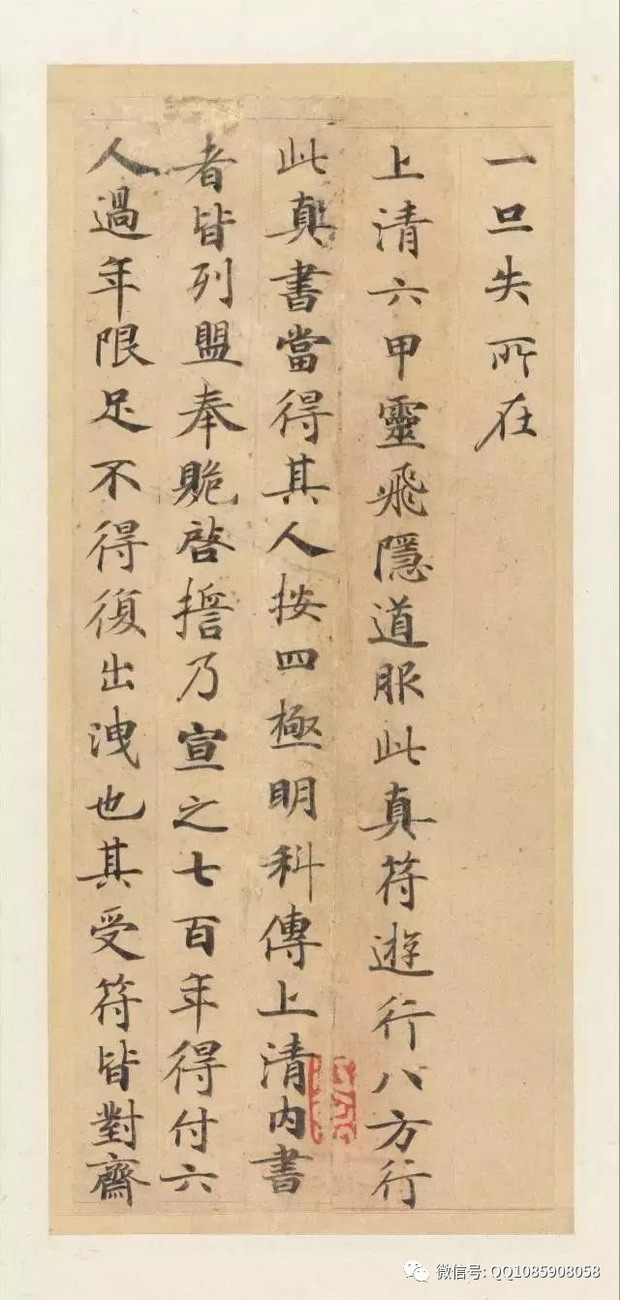 一旦失所在
上清六甲靈飛隱道服此真符遊行八方行
此真書當得其人按四極明科傳上清內書
者皆列盟奉贶啓擔乃宣之七百年得付六
人過年限足不得復出洩也其受符皆對齋
微信号: QQ1085908058